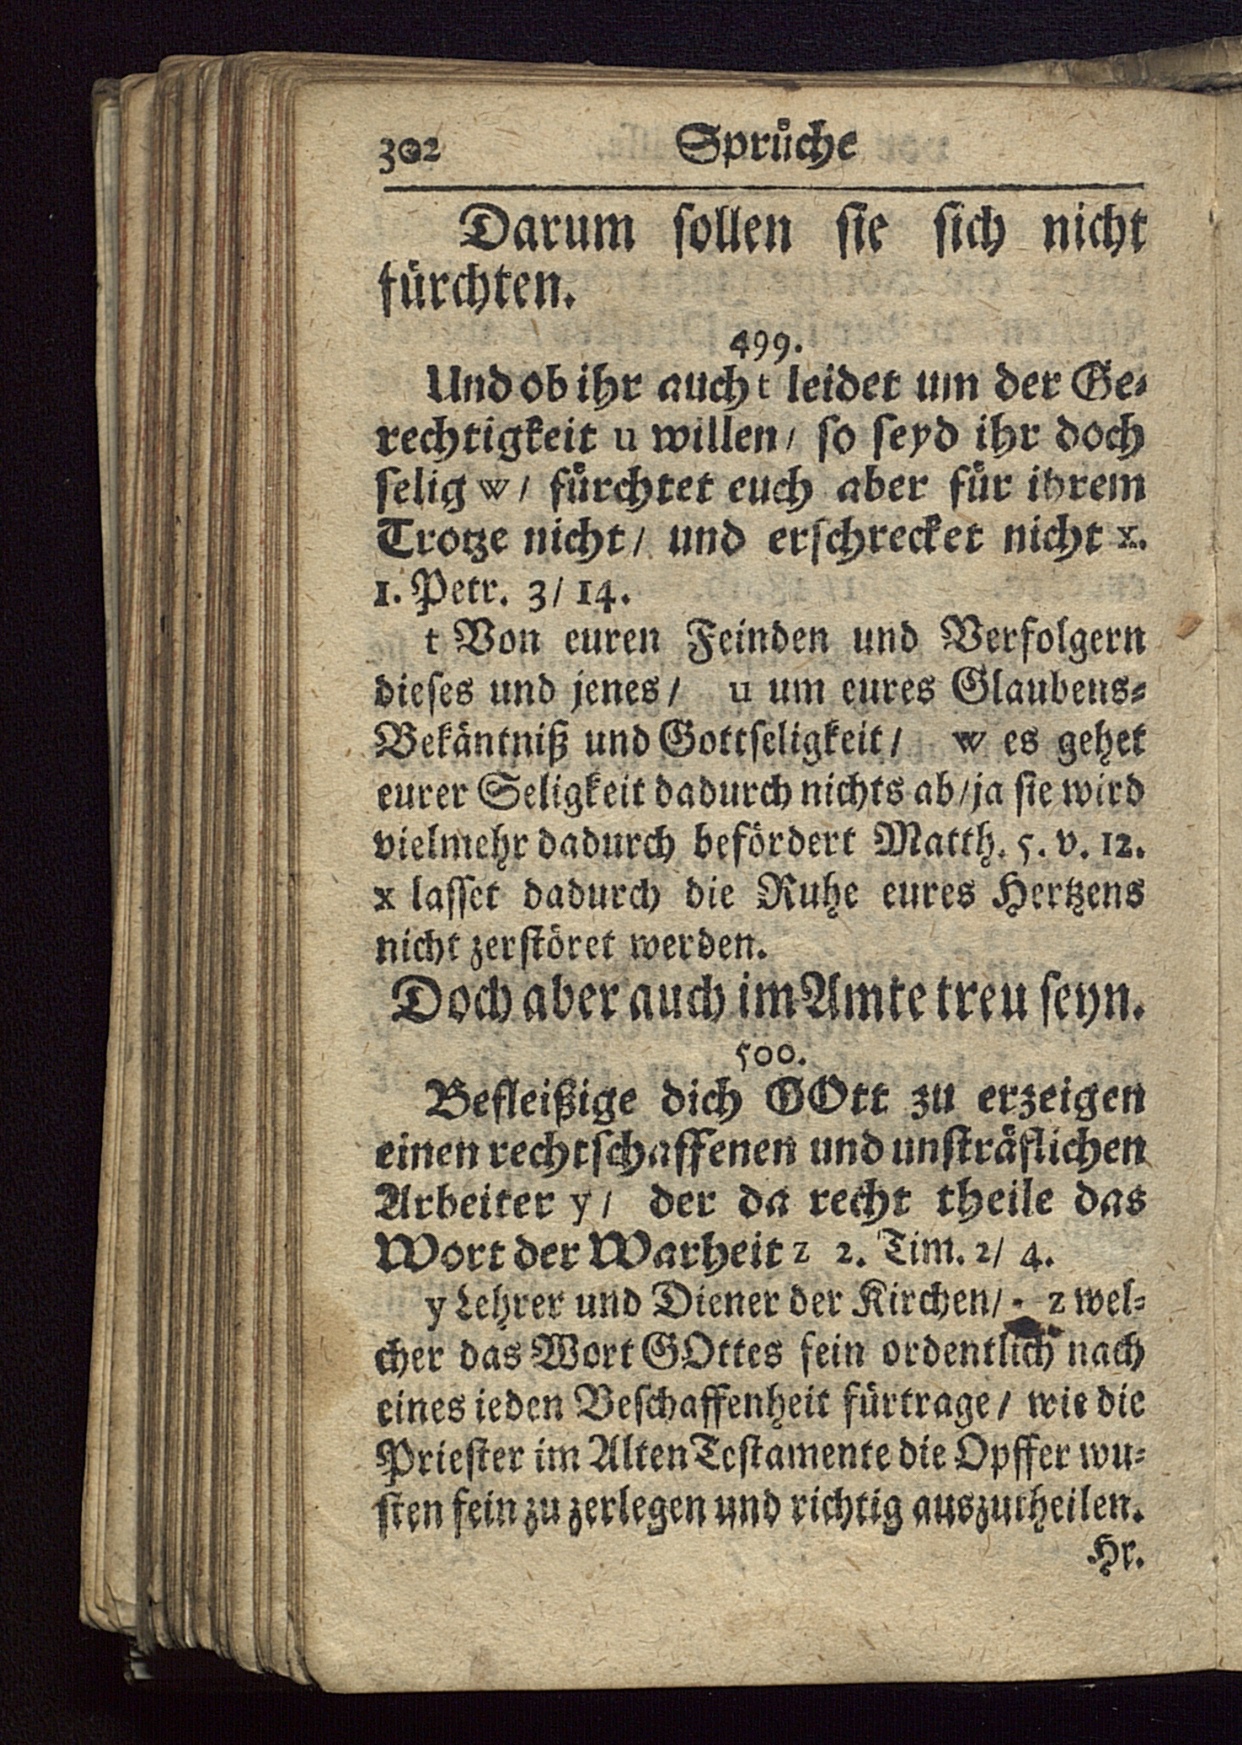 302 Sprůche
Darum sollen sie sich nicht
fürchten.
499.
Und ob ihr auch t leidet um der Ge-
rechtigkeit u willen/ so seyd ihr doch
selig w/ fůrchtet euch aber fůr ihrem
Trotze nicht/ und erschrecket nicht x.
1. Petr. 3/ 14.
t Von euren Feinden und Verfolgern
dieses und jenes/ u um eures Glaubens-
Bekäntniß und Gottseligkeit/ w es gehet
eurer Seligkeit dadurch nichts ab/ ja sie wird
vielmehr dadurch befördert Matth. 5. v. 12.
x lasset dadurch die Ruhe eures Hertzens
nicht zerstöret werden.
Doch aber auch im Amte treu seyn.
500.
Befleißige dich GOtt zu erzeigen
einen rechtschaffenen und unsträflichen
Arbeiter y/ der da recht theile das
Wort der Warheit z 2. Tim. 2/ 4.
y Lehrer und Diener der Kirchen/ z wel-
cher das Wort GOttes fein ordentlich nach
eines ieden Beschaffenheit fürtrage/ wie die
Priester im Alten Testamente die Opffer wu-
sten fein zu zerlegen und richtig auszutheilen.
Hr.